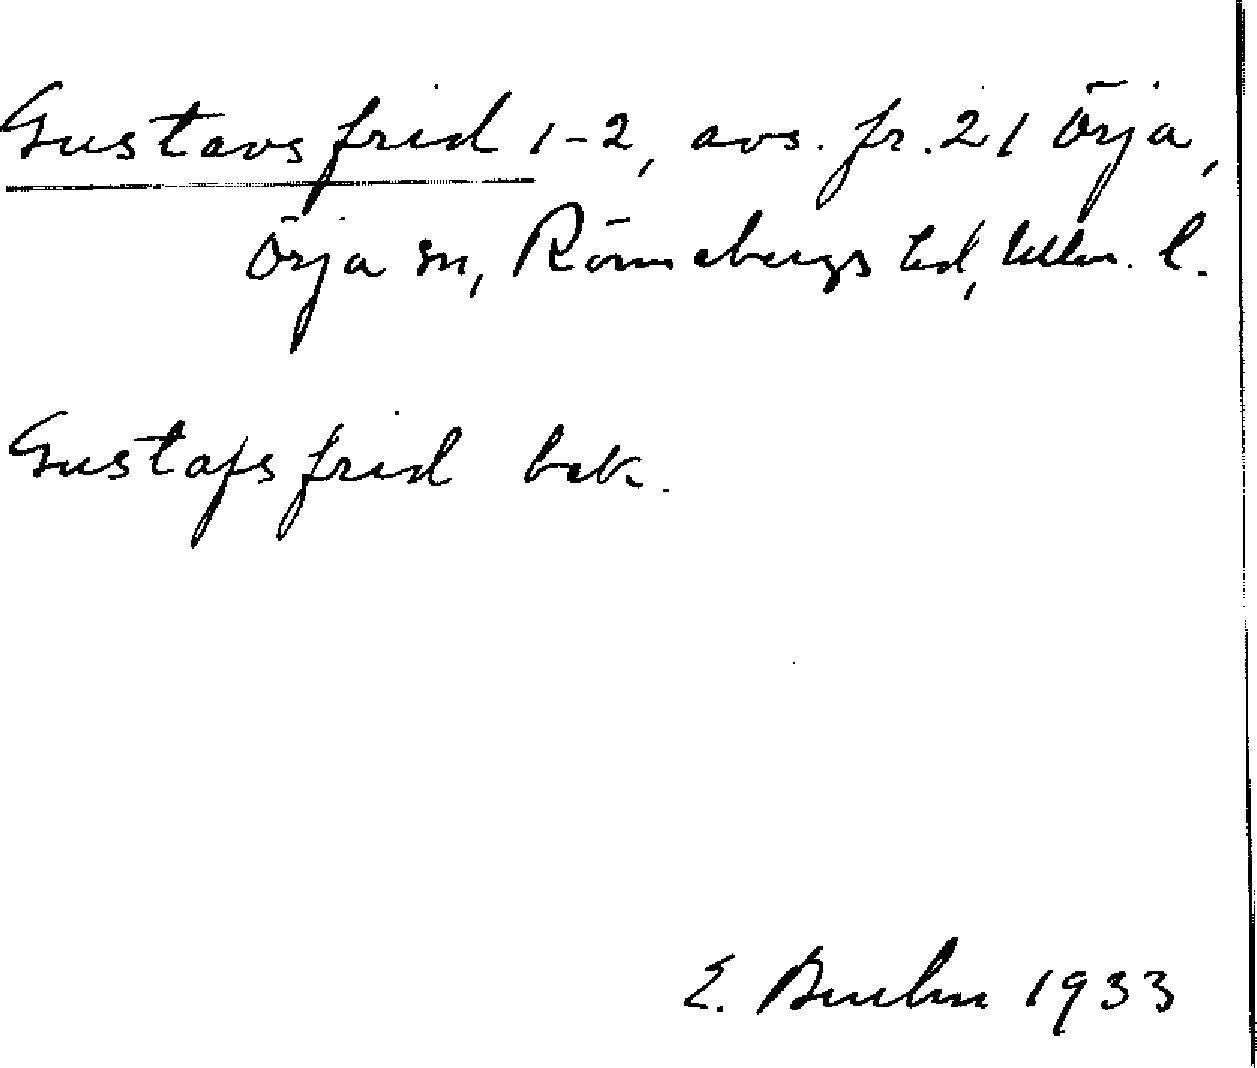 Gustavsfrid 1-2, avs. fr. 21 Örja,
Örja sn, Rönnebergs hd, Mlm. l.
Gustafsfrid bek.
E. 1933